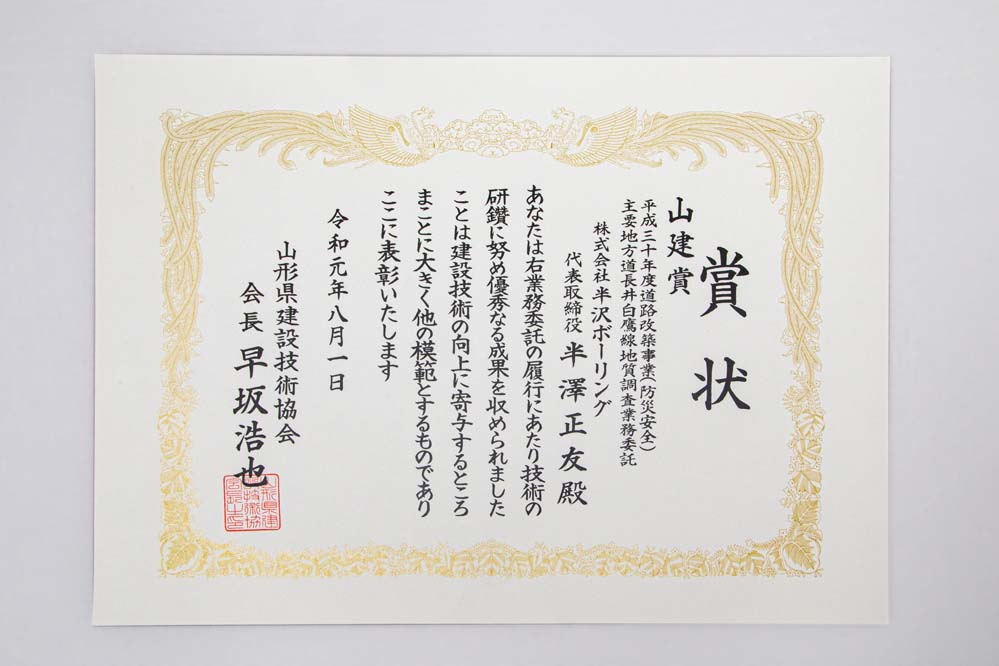 賞状
山建賞
平成三十年度道路改築事業(防災安全)
主要地方道長井白鷹線地質調査業務委託
株式会社半沢ボーリング
代表取締役 半澤正友殿
あなたは右業務委託の履行にあたり技術の
研鑽に努め優秀なる成果を収められました
ことは建設技術の向上に寄与するところ
まことに大きく他の模範とするものであり
ここに表彰いたします
令和元年八月一日
山形県建設技術協会
会長 早坂浩也